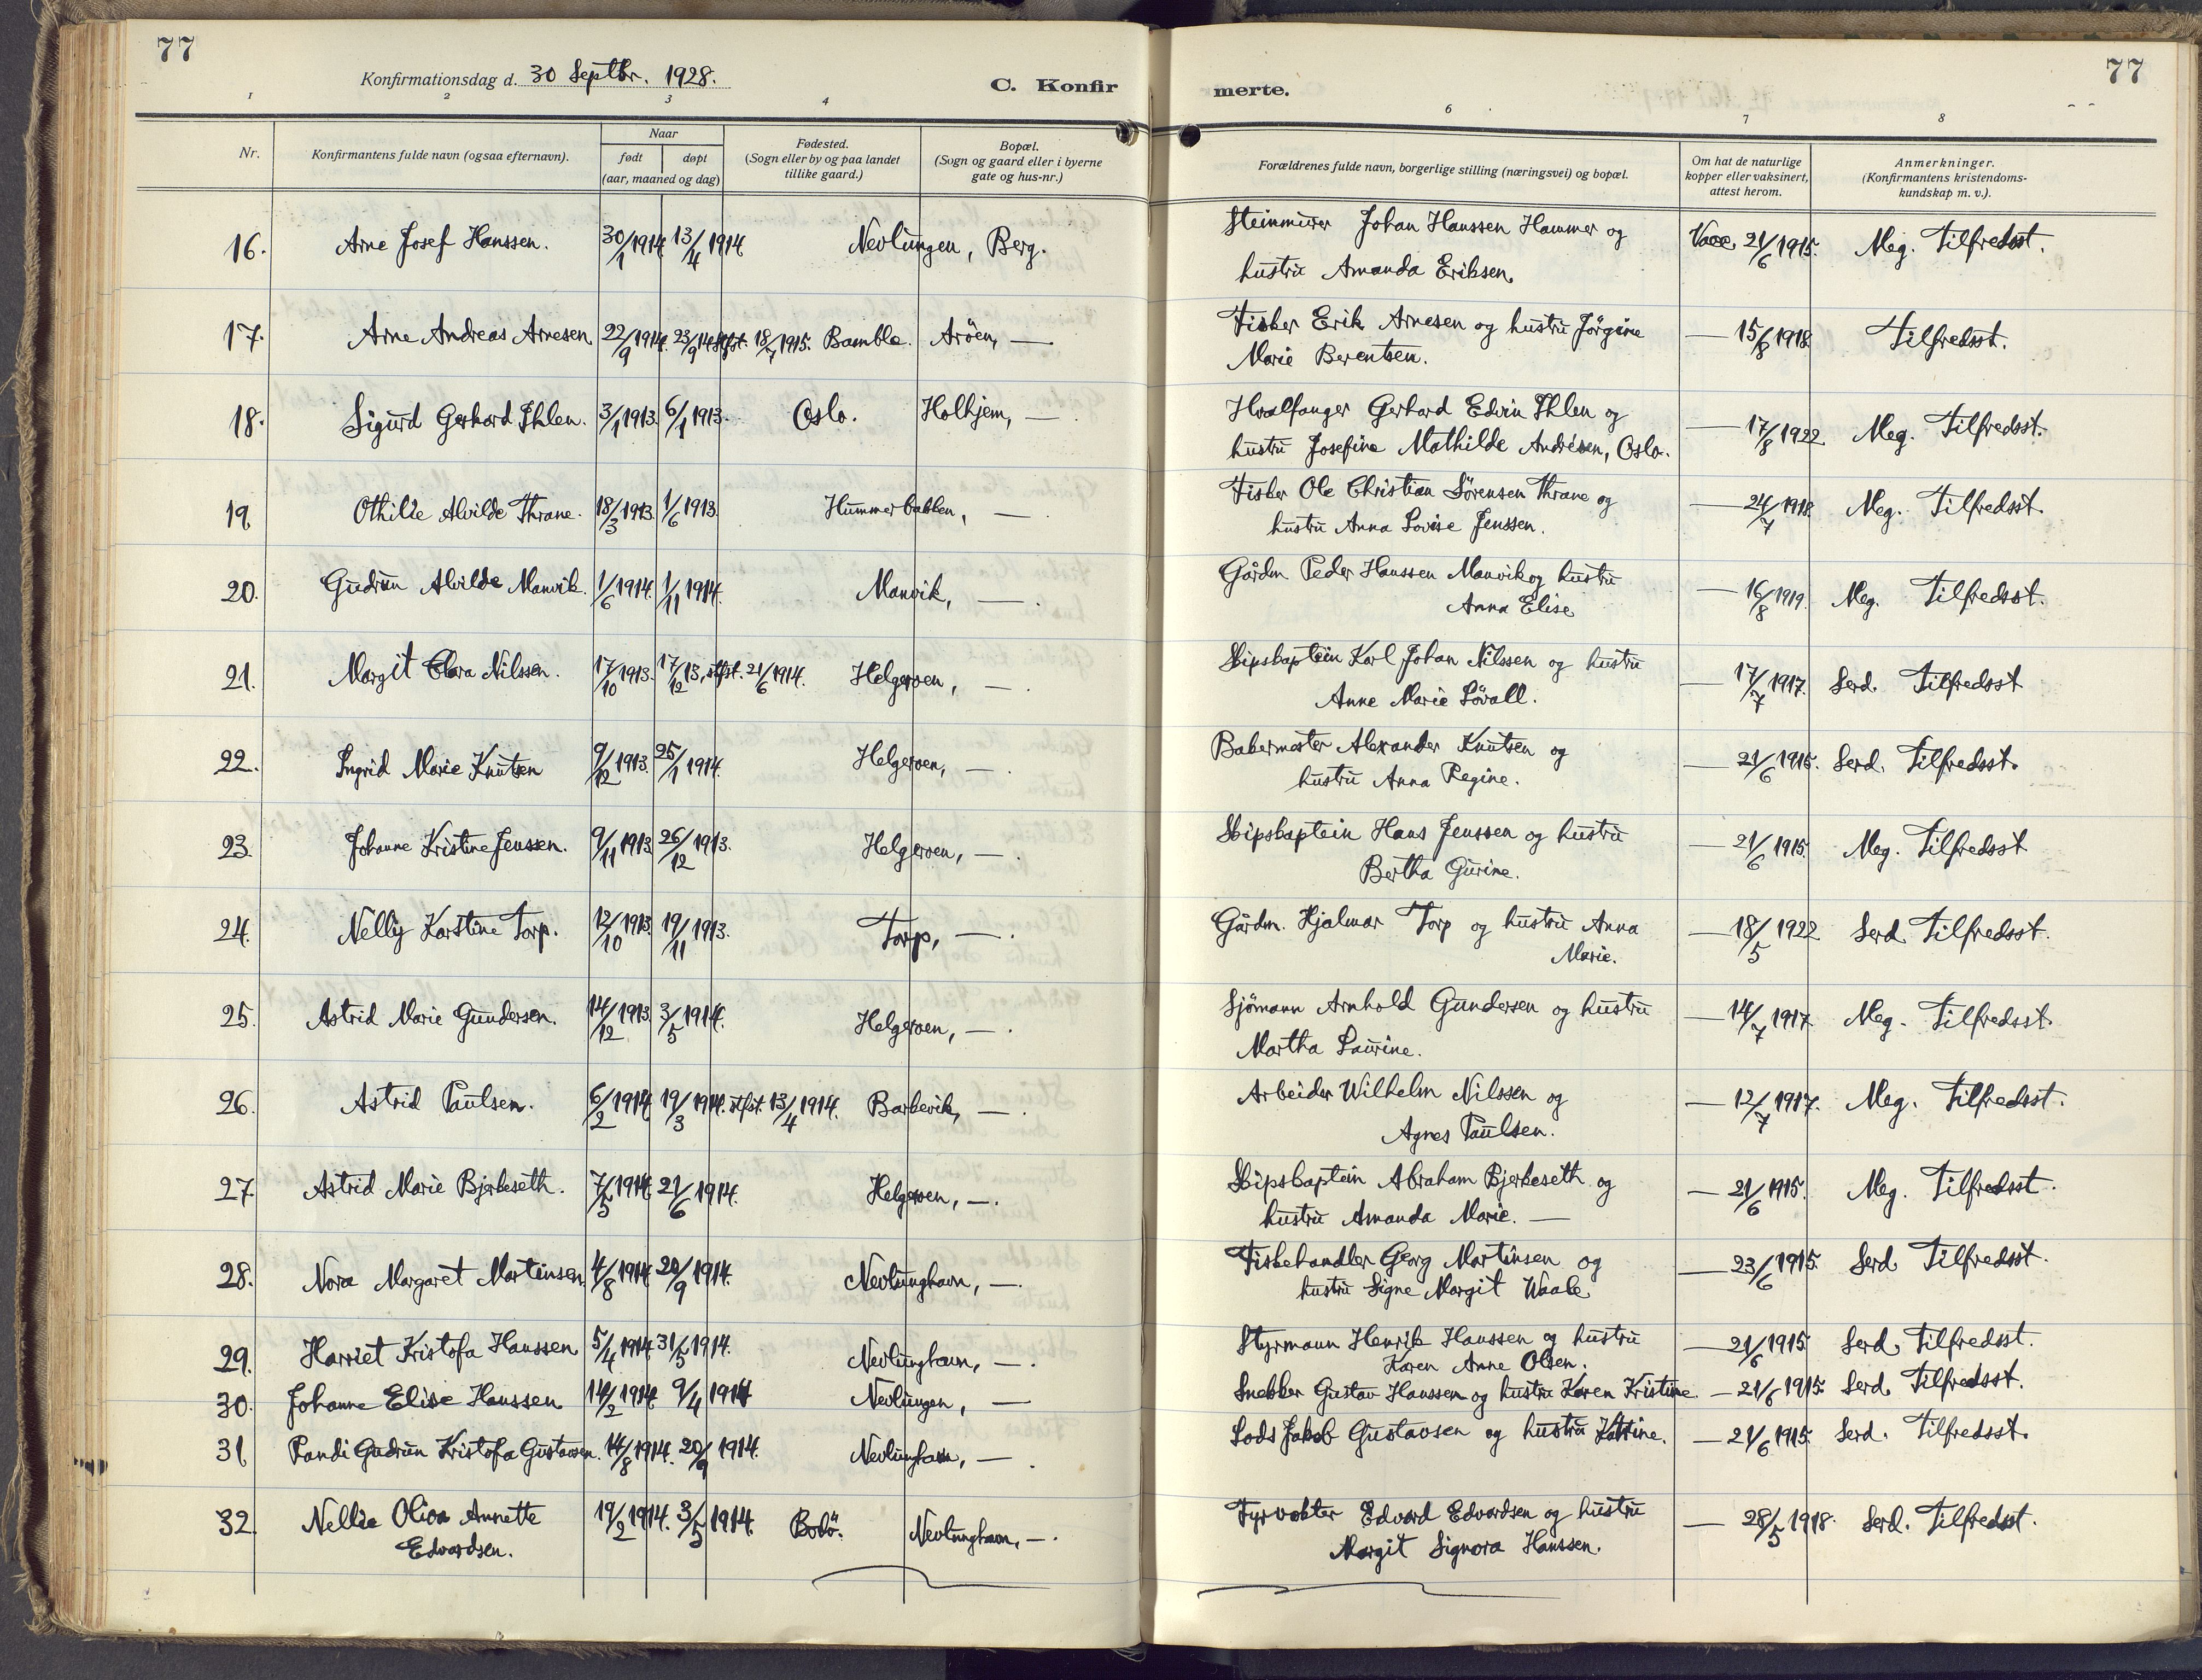 77
Konfirmationsdag d. 30 Septbr. 1928.
C. Konfir
merte.
77
1 2 3 4 6 7 8
Nr.
Konfirmantens fulde navn (ogsaa efternavn).
Naar
født døpt
(aar, maaned og dag)
Fødested.
(Sogn eller by og paa landet
tillike gaard.)
Bopæl.
(Sogn og gaard eller i byerne
gate og hus-nr.)
Forældrenes fulde navn, borgerlige stilling (næringsvei) og bopæl.
Om hat de naturlige
kopper eller vaksinert,
attest herom.
Anmerkninger.
(Konfirmantens kristendoms-
kundskap m. v.).
16. Arne Josef Hanssen. 30/1 1914. 13/4 1914 Nevlungen, Berg. Steinmurer Johan Hanssen Hammer og Vacc. 21/6 1915. Meg. Tilfredsst.
hustru Amanda Eriksen.
17. Arne Andreas Arnesen 22/9 1914. 23/9 14 stfst. 18/7 1915. Bamble. Arøen, — Fisker Erik Arnesen og hustru Jørgine — 15/8 1918. Tilfredsst.
Marie Berentsen.
18. Sigurd Gerhard Ihlen. 3/1 1913. 6/1 1913. Oslo. Holhjem, — Hvalfanger Gerhard Edvin Ihlen og — 17/8 1922. Meg. Tilfredsst.
hustru Josefine Mathilde Andresen, Oslo.
19. Othilie Alvilde Thrane. 18/3 1913. 1/6 1913. Hummerbakken, — Fisker Ole Christian Sørensen Thrane og — 24/7 1918. Meg. Tilfredsst.
hustru Anna Lovise Jenssen.
20. Gudrun Alvilde Manvik. 1/6 1914. 1/11 1914. Manvik, —. Gårdm. Peder Hanssen Manvik og hustru — 16/8 1919. Meg. Tilfredsst.
Anna Elise
21. Margit Clara Nilssen. 17/10 1913. 17/12 13, stfst. 21/6 1914. Helgeroen, —. Skipskaptein Karl Johan Nilssen og hustru — 17/7 1917. Serd. Tilfredsst
Anne Marie Søvall.
22. Ingrid Marie Knutsen 9/12 1913. 25/1 1914. Helgeroen, —. Bakermester Alexander Knutsen og — 21/6 1915. Serd. Tilfredsst.
hustru Anna Regine.
23. Johanne Kristine Jenssen. 9/11 1913. 26/12 1913. Helgeroen, —. Skipskaptein Hans Jenssen og hustru — 21/6 1915. Meg. Tilfredsst
Bertha Gurine.
24. Nelly Karstine Torp. 12/10 1913. 19/11 1913. Torp, —. Gårdm. Hjalmar Torp og hustru Anna — 18/5 1922 Serd. Tilfredsst.
Marie.
25. Astrid Marie Gundersen. 14/12 1913. 3/5 1914. Helgeroen, —. Sjømann Arnhold Gundersen og hustru — 14/7 1917. Meg. Tilfredsst.
Martha Laurine.
26. Astrid Paulsen. 6/2 1914. 19/3 1914. stfst. 13/4 1914. Barkevik, —. Arbeider Wilhelm Nilssen og — 12/7 1917. Meg. Tilfredsst.
Agnes Paulsen.
27. Astrid Marie Bjerkeseth. 7/5 1914. 21/6 1914. Helgeroen, —. Skipskaptein Abraham Bjerkeseth og — 21/6 1915. Meg. Tilfredsst.
hustru Amanda Marie. —
28. Nora Margaret Martinsen. 4/8 1914. 20/9 1914. Nevlunghavn, —. Fiskehandler Georg Martinsen og — 23/6 1915. Serd. Tilfredsst.
hustru Signe Margit Waale.
29. Harriet Kristofa Hanssen 5/4 1914. 31/5 1914. Nevlunghavn, —. Styrmann Henrik Hanssen og hustru — 21/6 1915. Serd. Tilfredsst.
Karen Anne Olsen.
30. Johanne Elise Hanssen 14/2 1914. 9/4 1914 Nevlungen, — Snekker Gustav Hanssen og hustru Karen Kristine. — 21/6 1915. Serd. Tilfredsst.
31. Randi Gudrun Kristofa Gustavsen. 14/8 1914. 20/9 1914. Nevlunghavn, —. Lods Jakob Gustavsen og hustru Katrine. — 21/6 1915. Serd. Tilfredsst.
32. Nellie Oliva Annette 19/2 1914. 3/5 1914. Bodø. Nevlunghavn, —. Fyrvokter Edvard Edvardsen og hustru — 28/5 1918. Serd. Tilfredsst.
Edvardsen. Margit Signora Hanssen.